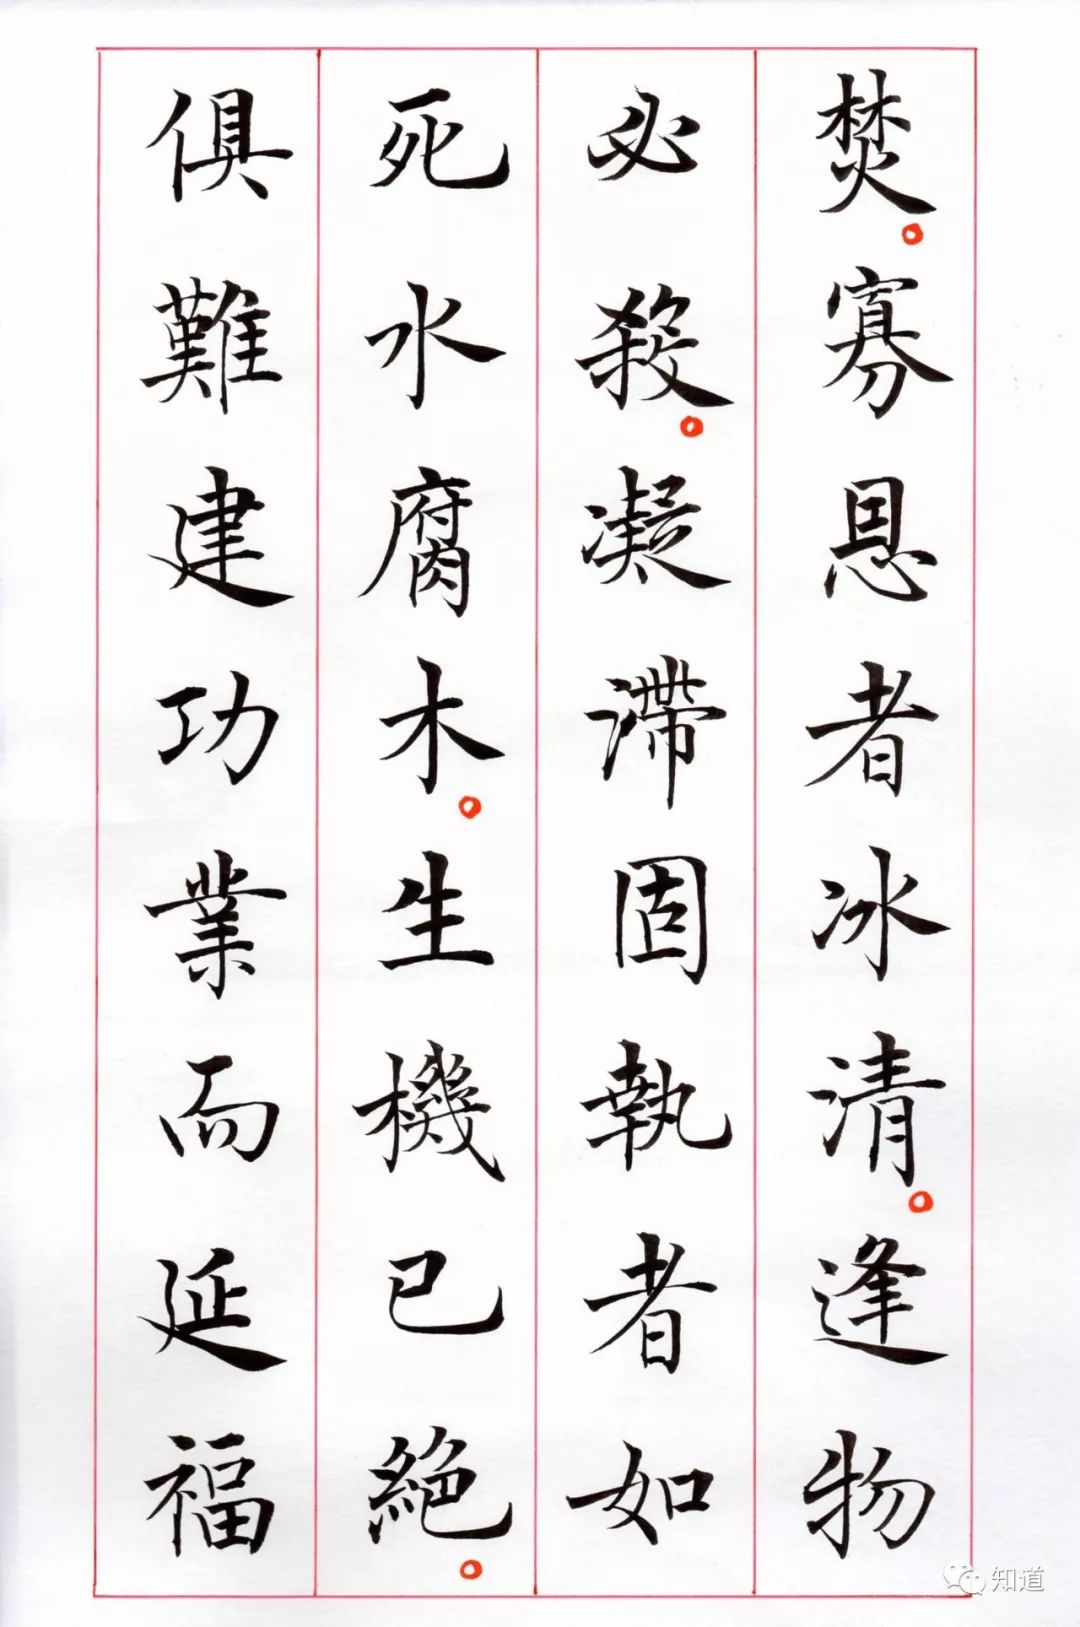 焚。寡恩者冰清。逢物
必殺。凝滯固執者如
死水腐木。生機已絕。
俱難建功業而延福
知道